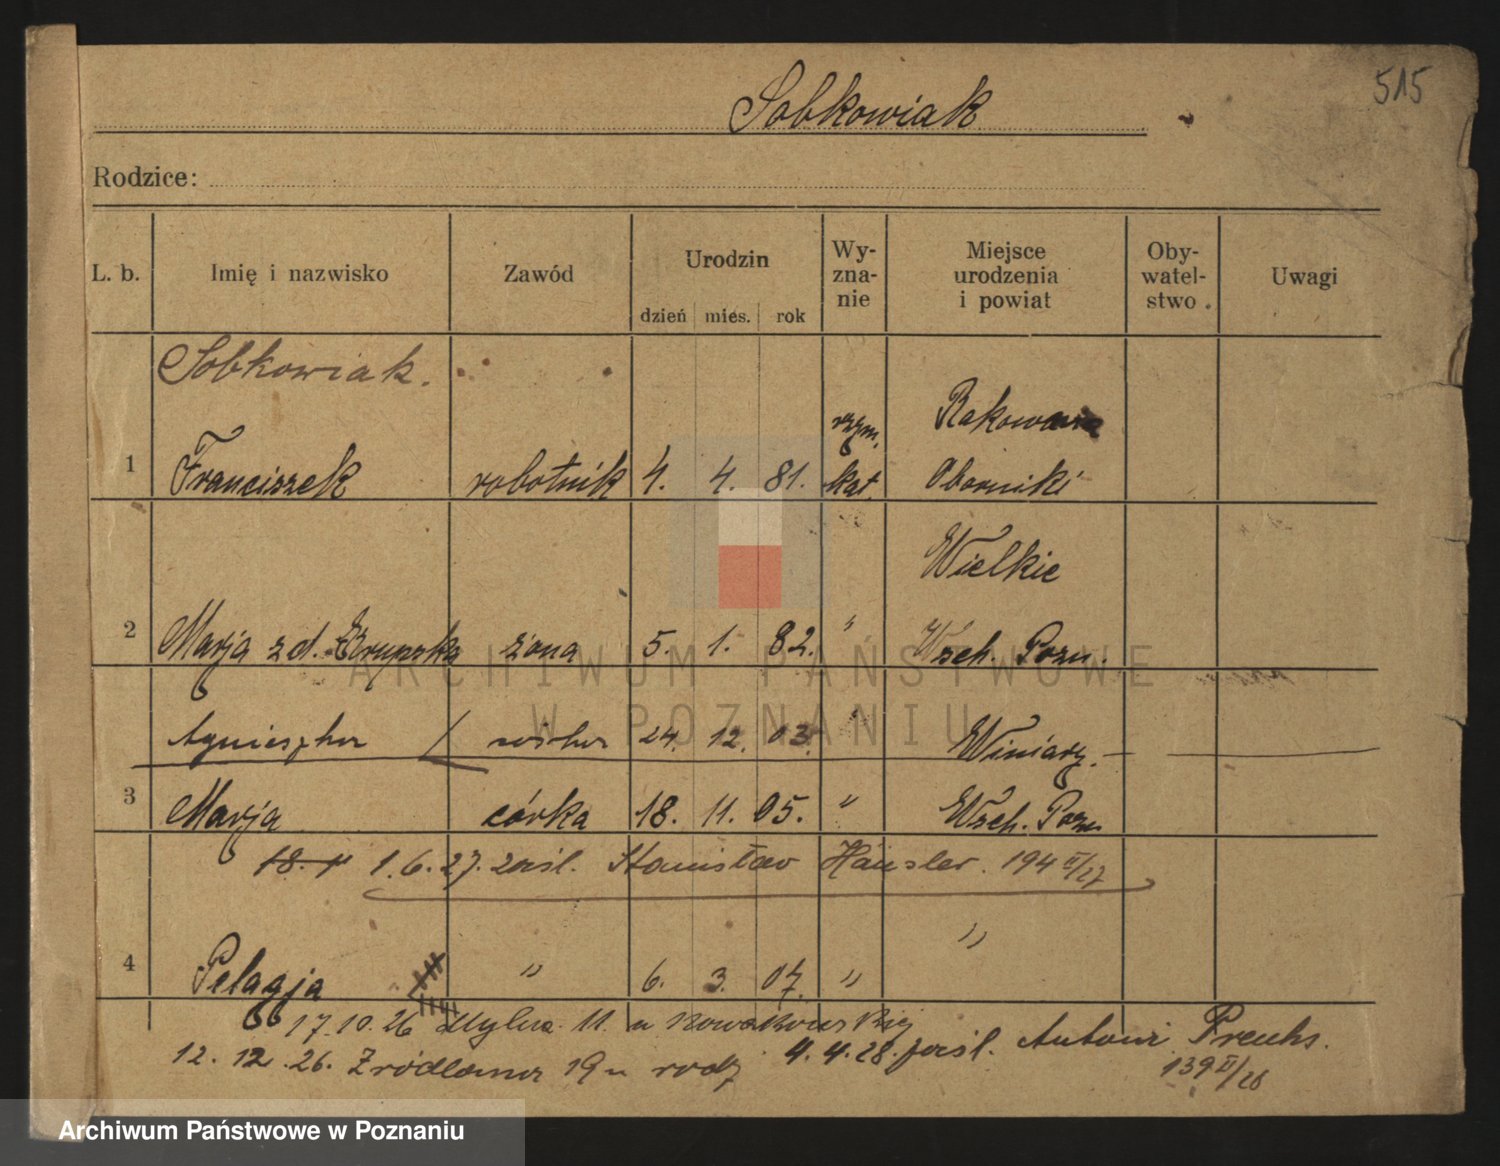 515
Sobkowiak
Rodzice:
L. b. Imię i nazwisko Zawód Urodzin dzień mies. rok Wy-zna-nie Miejsce urodzenia i powiat Oby-watel-stwo Uwagi
Sobkowiak.
1 Franciszek robotnik 4. 4. 81. rzym. kat. Oborniki
Wielkie
2 Marja z d. żona 5. 1. 82. " Wsch. Pozn.
Agnieszka / córka 24. 12. 03. " Winiary.
3 Marja córka 18. 11. 05. " Wsch. Pozn.
1.6.27. zaśl. Stanisław Häusler. 194 II/27
4 Pelagja " 6. 3. 07. " "
17.10.26 Mylna 11. u Nowakowskiej
12. 12. 26. Źródlana 19 u rodz 4.4.28. zaśl. Antoni
139 II/28
ARCHIWUM PAŃSTWOWE
W POZNANIU
Archiwum Państwowe w Poznaniu